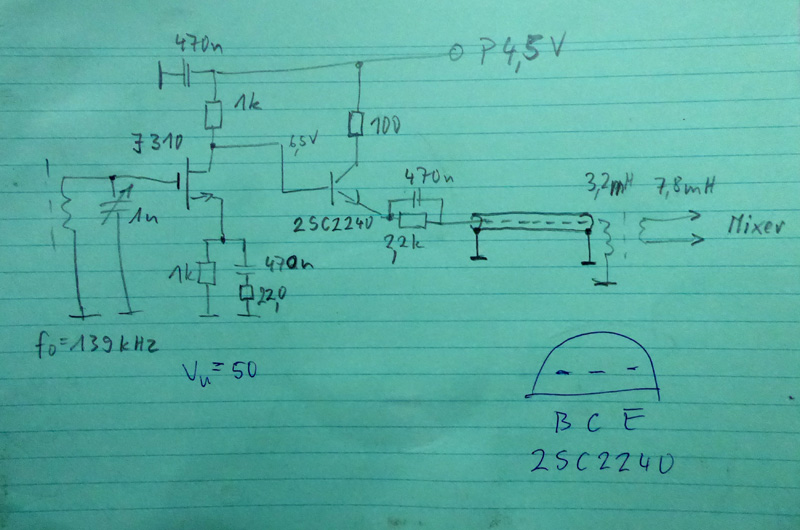 470n
P4,5V
1k
100
J310
6,5V
470n
3,2mH 7,8mH
1n
2SC2240
2,2k
Mixer
1k
470n
220
f0=139kHz
Vu=50
B C E
2SC2240